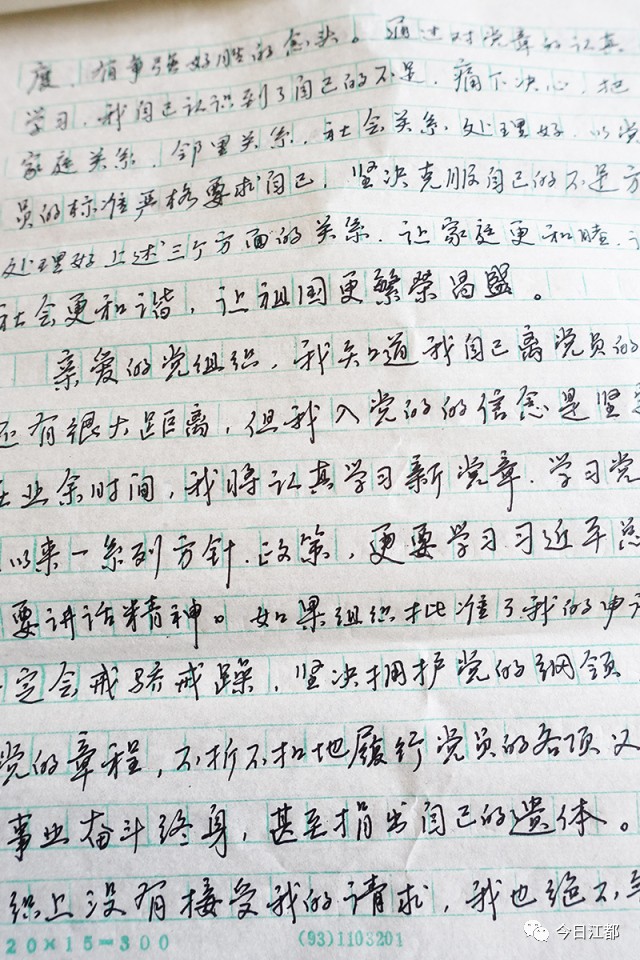 度、有争强好胜的念头。通过对党章的认真
学习，我自己认识到了自己的不足，痛下决心，把
家庭关系、邻里关系、社会关系，处理好，以党
员的标准严格要求自己，坚决克服自己的不足方
处理好上述三个方面的关系，让家庭更和睦，
社会更和谐，让祖国更繁荣昌盛。
亲爱的党组织，我知道我自己离党员的
还有很大距离，但我入党的的信念是坚
在业余时间，我将认真学习新党章，学习党
以来一系列方针、政策，更要学习习近平总
要讲话精神。如果组织批准了我的申
定会戒骄戒躁，坚决拥护党的纲领
党的章程，不折不扣地履行党员的各项义
事业奋斗终身，甚至捐出自己的遗体。
织上没有接受我的请求，我也绝不
20×15=300 (93)1103201
今日江都